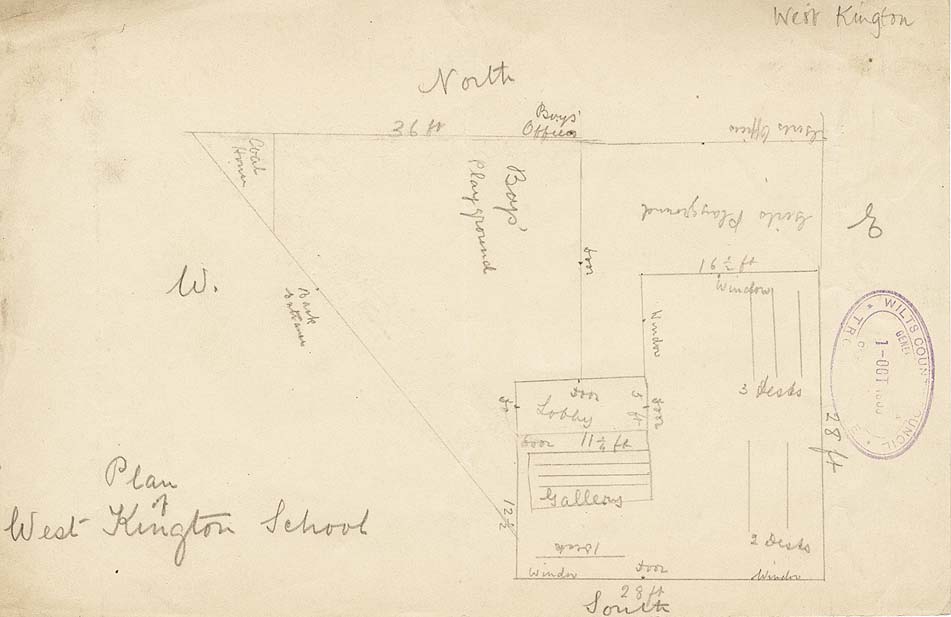 West Kington
North
36 ft
Boys'
Offices
Girls Offices
Coal
House
Boys'
Playground
Girls Playground
E
W.
Door
16 1/2 ft
Window
Back
Entrance
Window
3 Desks
28 ft
Door
Lobby
5 ft
Door
Door
11 1/4 ft
Gallery
12 1/2
Plan
of
West Kington School
2 Desks
Desk
Window
Door
Window
28 ft
South
WILTS COUN
COUNCIL
1-OCT